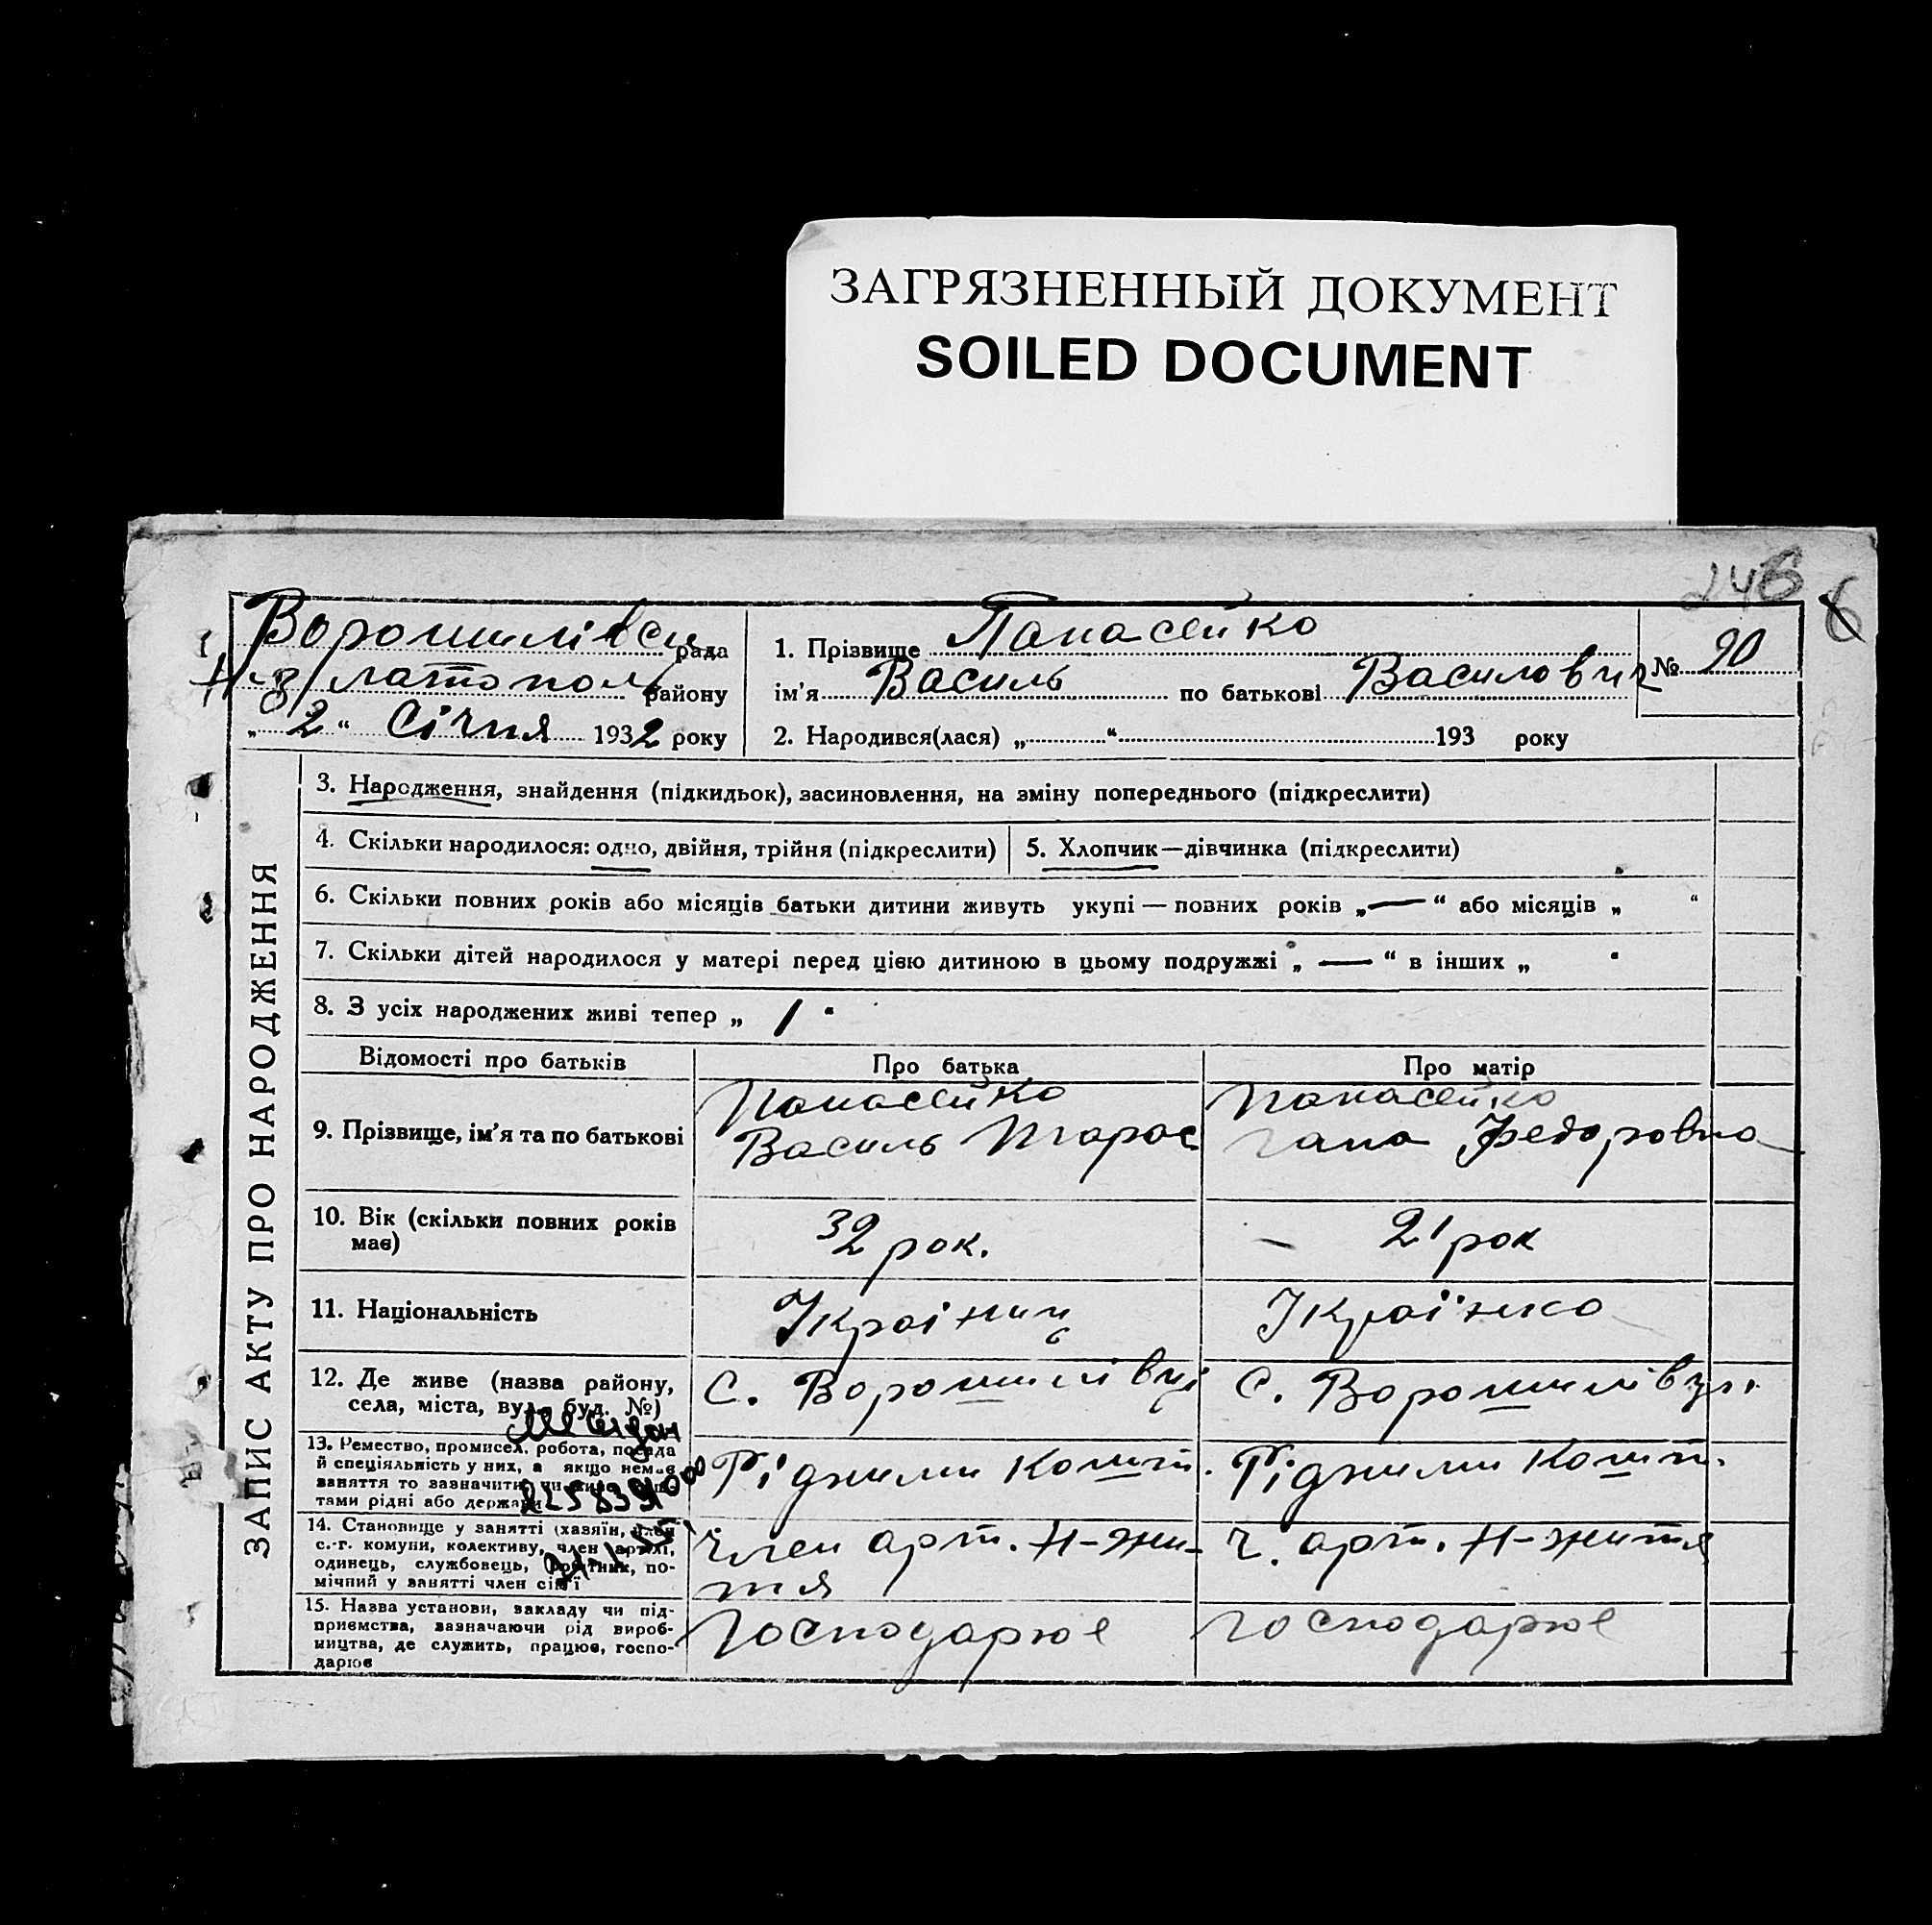 ЗАГРЯЗНЕННЫЙ ДОКУМЕНТ
SOILED DOCUMENT
246
6
Ворошилівськ рада
Н-Златопол району
„2“ Січня 1932 року
1. Прізвище Панасейко
№ 90
ім'я Василь по батькові Василович
2. Народився(лася) „ “ 193 року
ЗАПИС АКТУ ПРО НАРОДЖЕННЯ
3. Народження, знайдення (підкидьок), засиновлення, на зміну попереднього (підкреслити)
4. Скільки народилося: одно, двійня, трійня (підкреслити)
5. Хлопчик—дівчинка (підкреслити)
6. Скільки повних років або місяців батьки дитини живуть укупі — повних років „—“ або місяців „ “
7. Скільки дітей народилося у матері перед цією дитиною в цьому подружжі „—“ в інших „ “
8. З усіх народжених живі тепер „ 1 “
Відомості про батьків
Про батька
Про матір
9. Прізвище, ім'я та по батькові
Панасейко
Василь Тарас
Панасейко
Гана Федоровна
10. Вік (скільки повних років має)
32 рок.
21 рок
11. Національність
Україниць
Українка
12. Де живе (назва району,
села, міста, вул., буд. №)
с. Ворошилівці
с. Ворошилівці
13. Ремество, промисел, робота, посада
й спеціяльність у них, а якщо немає
заняття то зазначити, чи живе кош-
тами рідні або держави
Рідними кошт.
Рідними кошт.
14. Становище у занятті (хазяїн, член
с.-г. комуни, колективу, член артілі,
одинець, службовець, робітник, по-
мічний у занятті член сім'ї
Член арт. Н-жи-
тя
Ч. арт. Н-життя
15. Назва установи, закладу чи під-
приємства, зазначаючи рід вироб-
ництва, де служить, працює, госпо-
дарює
Господарює
Господарює